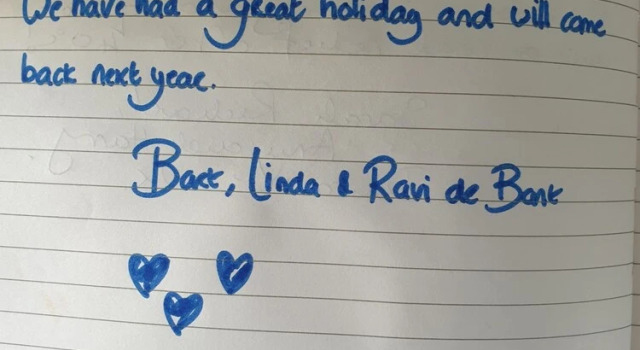 We have had a great holiday and will come
back next year.
Bart, Linda & Ravi de Bont